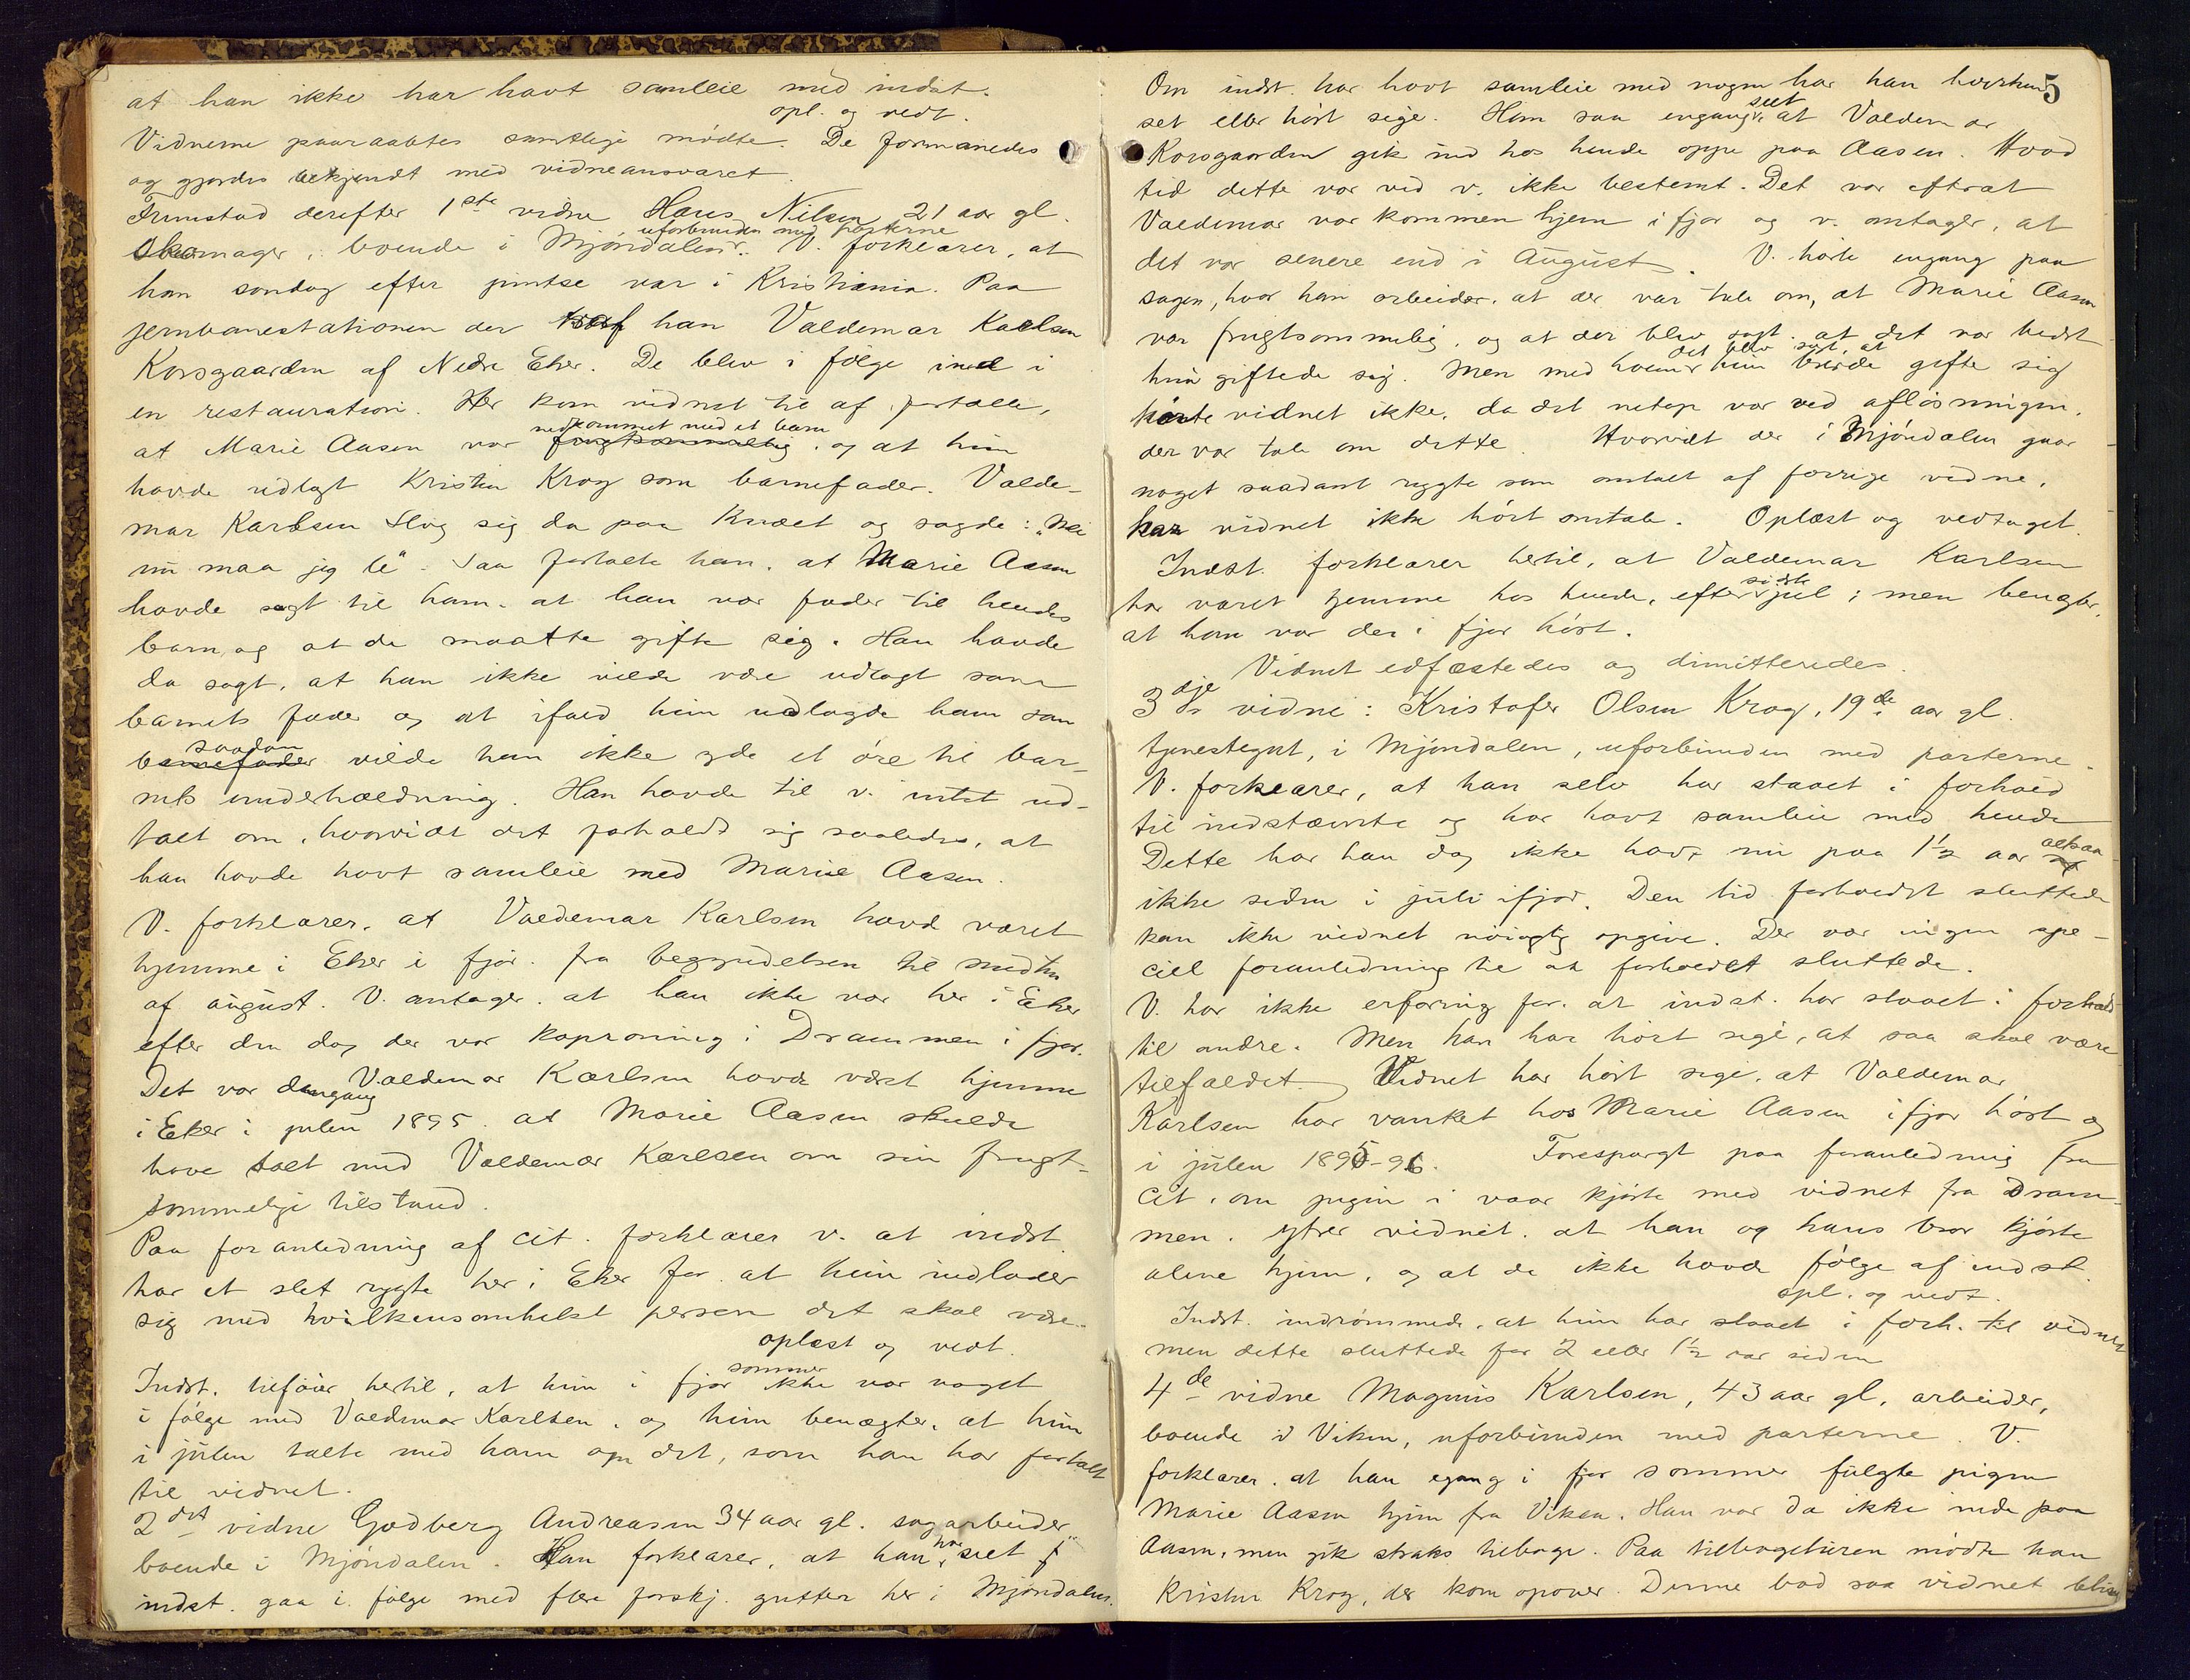 at han ikke har havt samleie med indst.
opl. og vedt.
Vidnerne paaraabtes samtlige mødte. De formanedes
og gjordes bekjendt med vidneansvaret.
Fremstod derefter 1ste vidne Hans Nilsen 21 aar gl.
uforbunden med parterne
skomager, boende i Mjøndalen. V. forklarer, at
han søndag efter pintse var i Kristiania. Paa
jernbanestationen der traf han Valdemar Karlsen
Korsgaarden af Nedre Eker. De blev i følge ind i
en restauration. Her kom vidnet til at fortælle,
nedkommet med et barn
at Marie Aasen var frugtsommelig, og at hun
havde udlagt Kristen Krog som barnefader. Valde-
mar Karlsen slog sig da paa knæet og sagde: "Nei
nu maa jeg le". Saa fortalte han, at Marie Aasen
havde sagt til ham, at han var fader til hendes
barn, og at de maatte gifte sig. Han havde
da sagt, at han ikke vilde være udlagt som
barnets fader og at ifald hun udlagde ham som
saadan
barnefader vilde han ikke yde et øre til bar-
nets underholdning. Han havde til v. intet ud-
talt om, hvorvidt det forholdt sig saaledes, at
han havde havt samleie med Marie Aasen.
V. forklarer, at Valdemar Karlsen havd været
hjemme i Eker i fjor fra begyndelsen til midten
af august. V. antager, at han ikke var her i Eker
efter den dag der var kaproning i Drammen i fjor.
Det var dengang Valdemar Karlsen havde været hjemme
i Eker i julen 1895 at Marie Aasen skulde
have talt med Valdemar Karlsen om sin frugt-
sommelige tilstand.
Paa foranledning af cit. forklarer v. at indst.
har et slet rygte her i Eker for at hun indlader
sig med hvilkensomhelst person det skal være.
oplæst og vedt.
sommer
Indst. tilføier hertil, at hun i fjor ikke var noget
i følge med Valdemar Karlsen, og hun benægter, at hun
i julen talte med ham om det, som han har fortalt
til vidnet.
2det vidne Godberg Andreasen 34 aar gl. sagarbeider
har
boende i Mjøndalen. Han forklarer, at han seet
indst. gaa i følge med flere forskj. gutter her i Mjøndalen.
5
Om indst. har havt samleie med nogen har han hverken
seet
set eller hørt sige. Han saa engang at Valdemar
Korsgaarden gik ind hos hende oppe paa Aasen. Hvad
tid dette var ved v. ikke bestemt. Det var efterat
Valdemar var kommen hjem i fjor og v. antager, at
det var senere end i August. V. hørte engang paa
sagen, hvor han arbeider, at der var tale om, at Marie Aasen
var frugtsommelig, og at der blev sagt, at det var bedst
det blev sagt, at
hun giftede sig. Men med hvem hun burde gifte sig
hørte vidnet ikke, da det netop var ved afløsningen,
der var tale om dette. Hvorvidt der i Mjøndalen gaar
noget saadant rygte som omtalt af forrige vidne,
har vidnet ikke hørt omtale. Oplæst og vedtaget.
Indst. forklarer hertil, at Valdemar Karlsen
sidste
har været hjemme hos hende, efter jul; men benegter,
at han var der i fjor høst.
Vidnet edfæstedes og dimitteredes.
3dje vidne: Kristofer Olsen Krog, 19de aar gl.
tjenestegut, i Mjøndalen, uforbunden med parterne.
V. forklarer, at han selv har staaet i forhold
til indstævnte og har havt samleie med hende
altsaa
Dette har han dog ikke havt nu paa 1½ aar
ikke siden i juli ifjor. Den tid forholdet sluttede
kan ikke vidnet nøiagtig opgive. Der var ingen spe-
ciel foranledning til at forholdet sluttede.
V. har ikke erfaring for, at indst. har staaet i forhold
til andre. Men han har hørt sige, at saa skal være
tilfældet. Vidnet har hørt sige, at Valdemar
Karlsen har vanket hos Marie Aasen ifjor høst og
i julen 1895-96. Forespurgt paa foranledning fra
cit. om pigen i vaar kjørte med vidnet fra Dram-
men, ytrer vidnet, at han og hans bror kjørte
alene hjem, og at de ikke havde følge af indst.
opl. og vedt.
Indst. indrømmede, at hun har staaet i forh. til vidnet
men dette sluttede for 2 eller 1½ aar siden
4de vidne Magnus Karlsen, 43 aar gl, arbeider,
boende i Viken, uforbunden med parterne. V.
forklarer, at han egang i fjor sommer fulgte pigen
Marie Aasen hjem fra Viken. Han var da ikke inde paa
Aasen, men gik straks tilbage. Paa tilbageturen mødte han
Kristen Krog, der kom opover. Denne bad saa vidnet blive